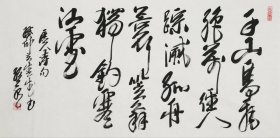 千山鳥飛
絶萬徑人
踪滅孤舟
蓑笠翁
獨釣寒
江雪
唐人詩句